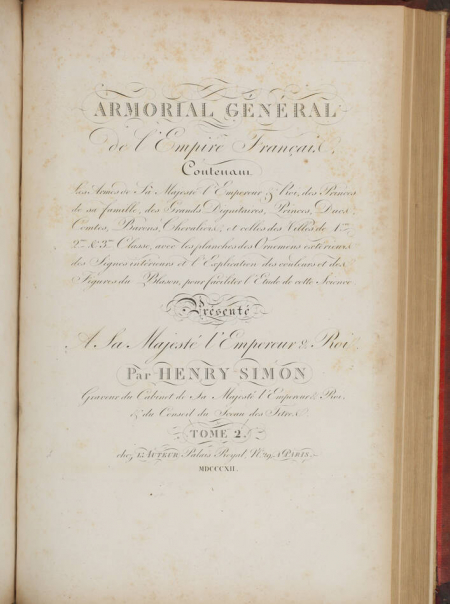 ARMORIAL GÉNÉRAL
de l'Empire Français,
Contenant
les Armes de Sa Majesté l'Empereur & Roi, des Princes
de sa famille, des Grands Dignitaires, Princes, Ducs,
Comtes, Barons, Chevaliers, et celles des Villes de 1re
2me & 3me Classe, avec les planches des Ornemens extérieurs
des Signes intérieurs et l'Explication des couleurs et des
Figures du Blason, pour faciliter l'Etude de cette Science
Présenté
A Sa Majesté l'Empereur & Roi
Par HENRY SIMON
Graveur du Cabinet de Sa Majesté l'Empereur & Roi,
& du Conseil du Sceau des Titres.
TOME 2.
chez L'AUTEUR Palais Royal, N. 29, A PARIS.
MDCCCXII.